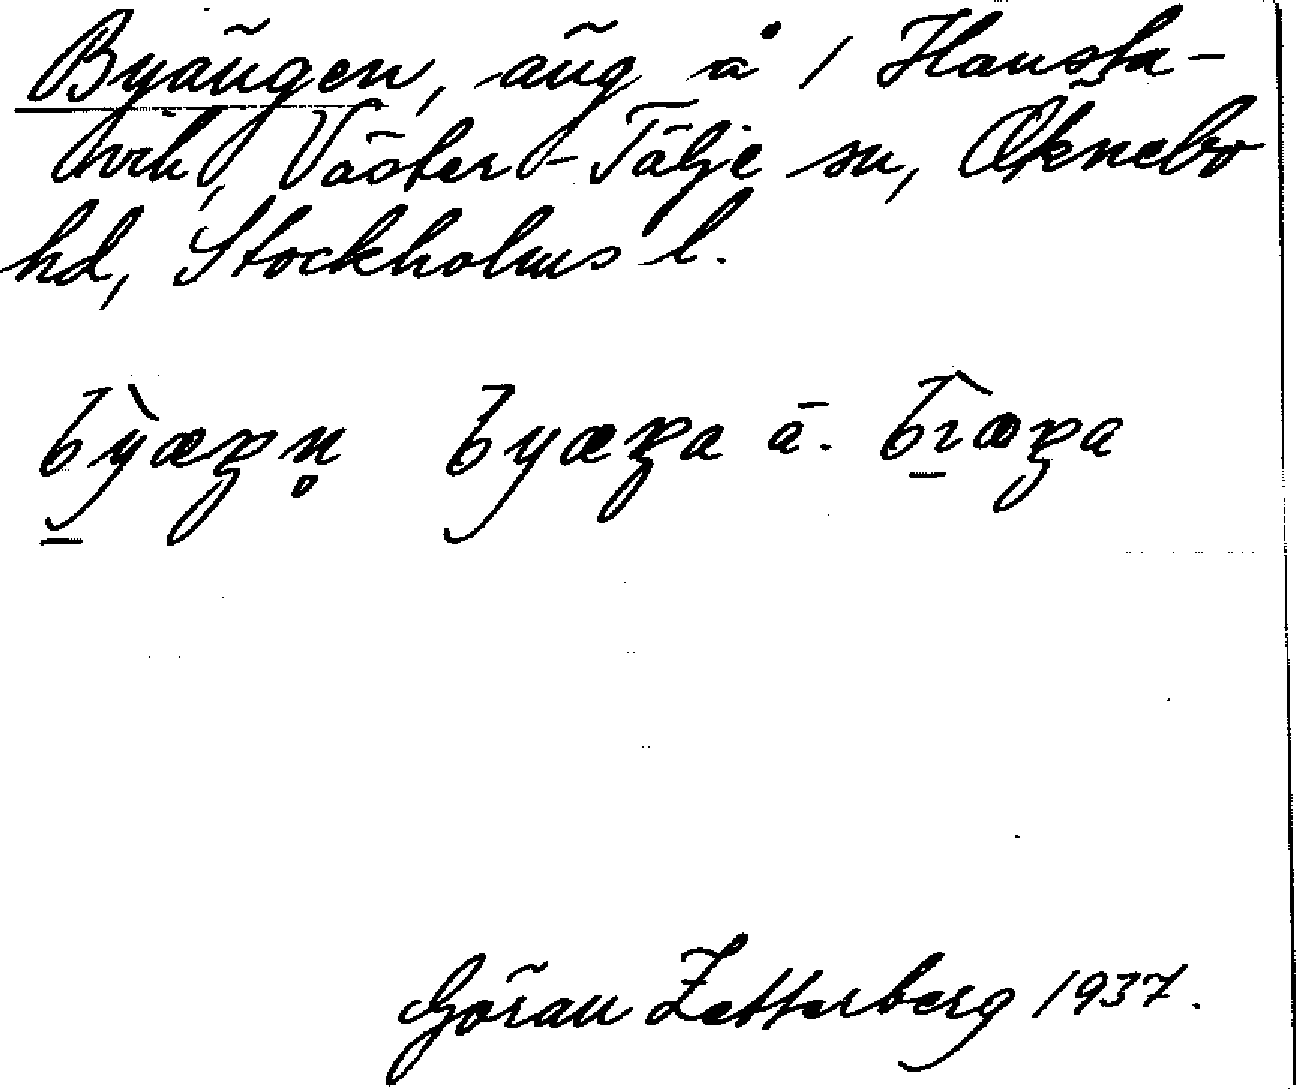 Byängen, äng å 1 Hansta-
vik, Väster-Tälje sn, Öknebo
hd, Stockholms l.
bỳ̱æŋn̥ byæŋa ā. bì̱æŋa
Göran Zetterberg 1937.